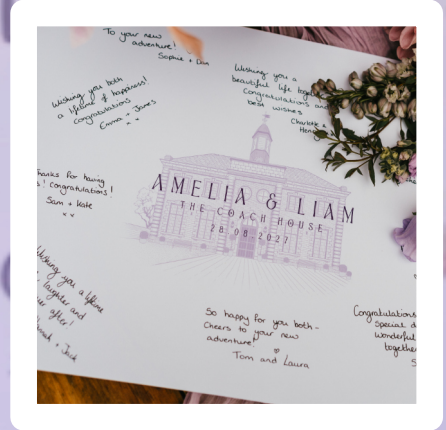 To your new
adventure!
Sophie + Dan
Wishing you both
a lifetime of happiness!
Congratulations
Emma + James
x x
Wishing you a
beautiful life together
Congratulations and
best wishes
Charlotte &
Hen
hanks for having
s! Congratulations!
Sam + Kate
x x
AMELIA & LIAM
THE COACH HOUSE
28 08 2027
Wishing you a lifetime
laughter and
er after!
+ Josh
So happy for you both -
Cheers to your new
adventure!
Tom and Laura
Congratulations
special d
wonderful
together
S